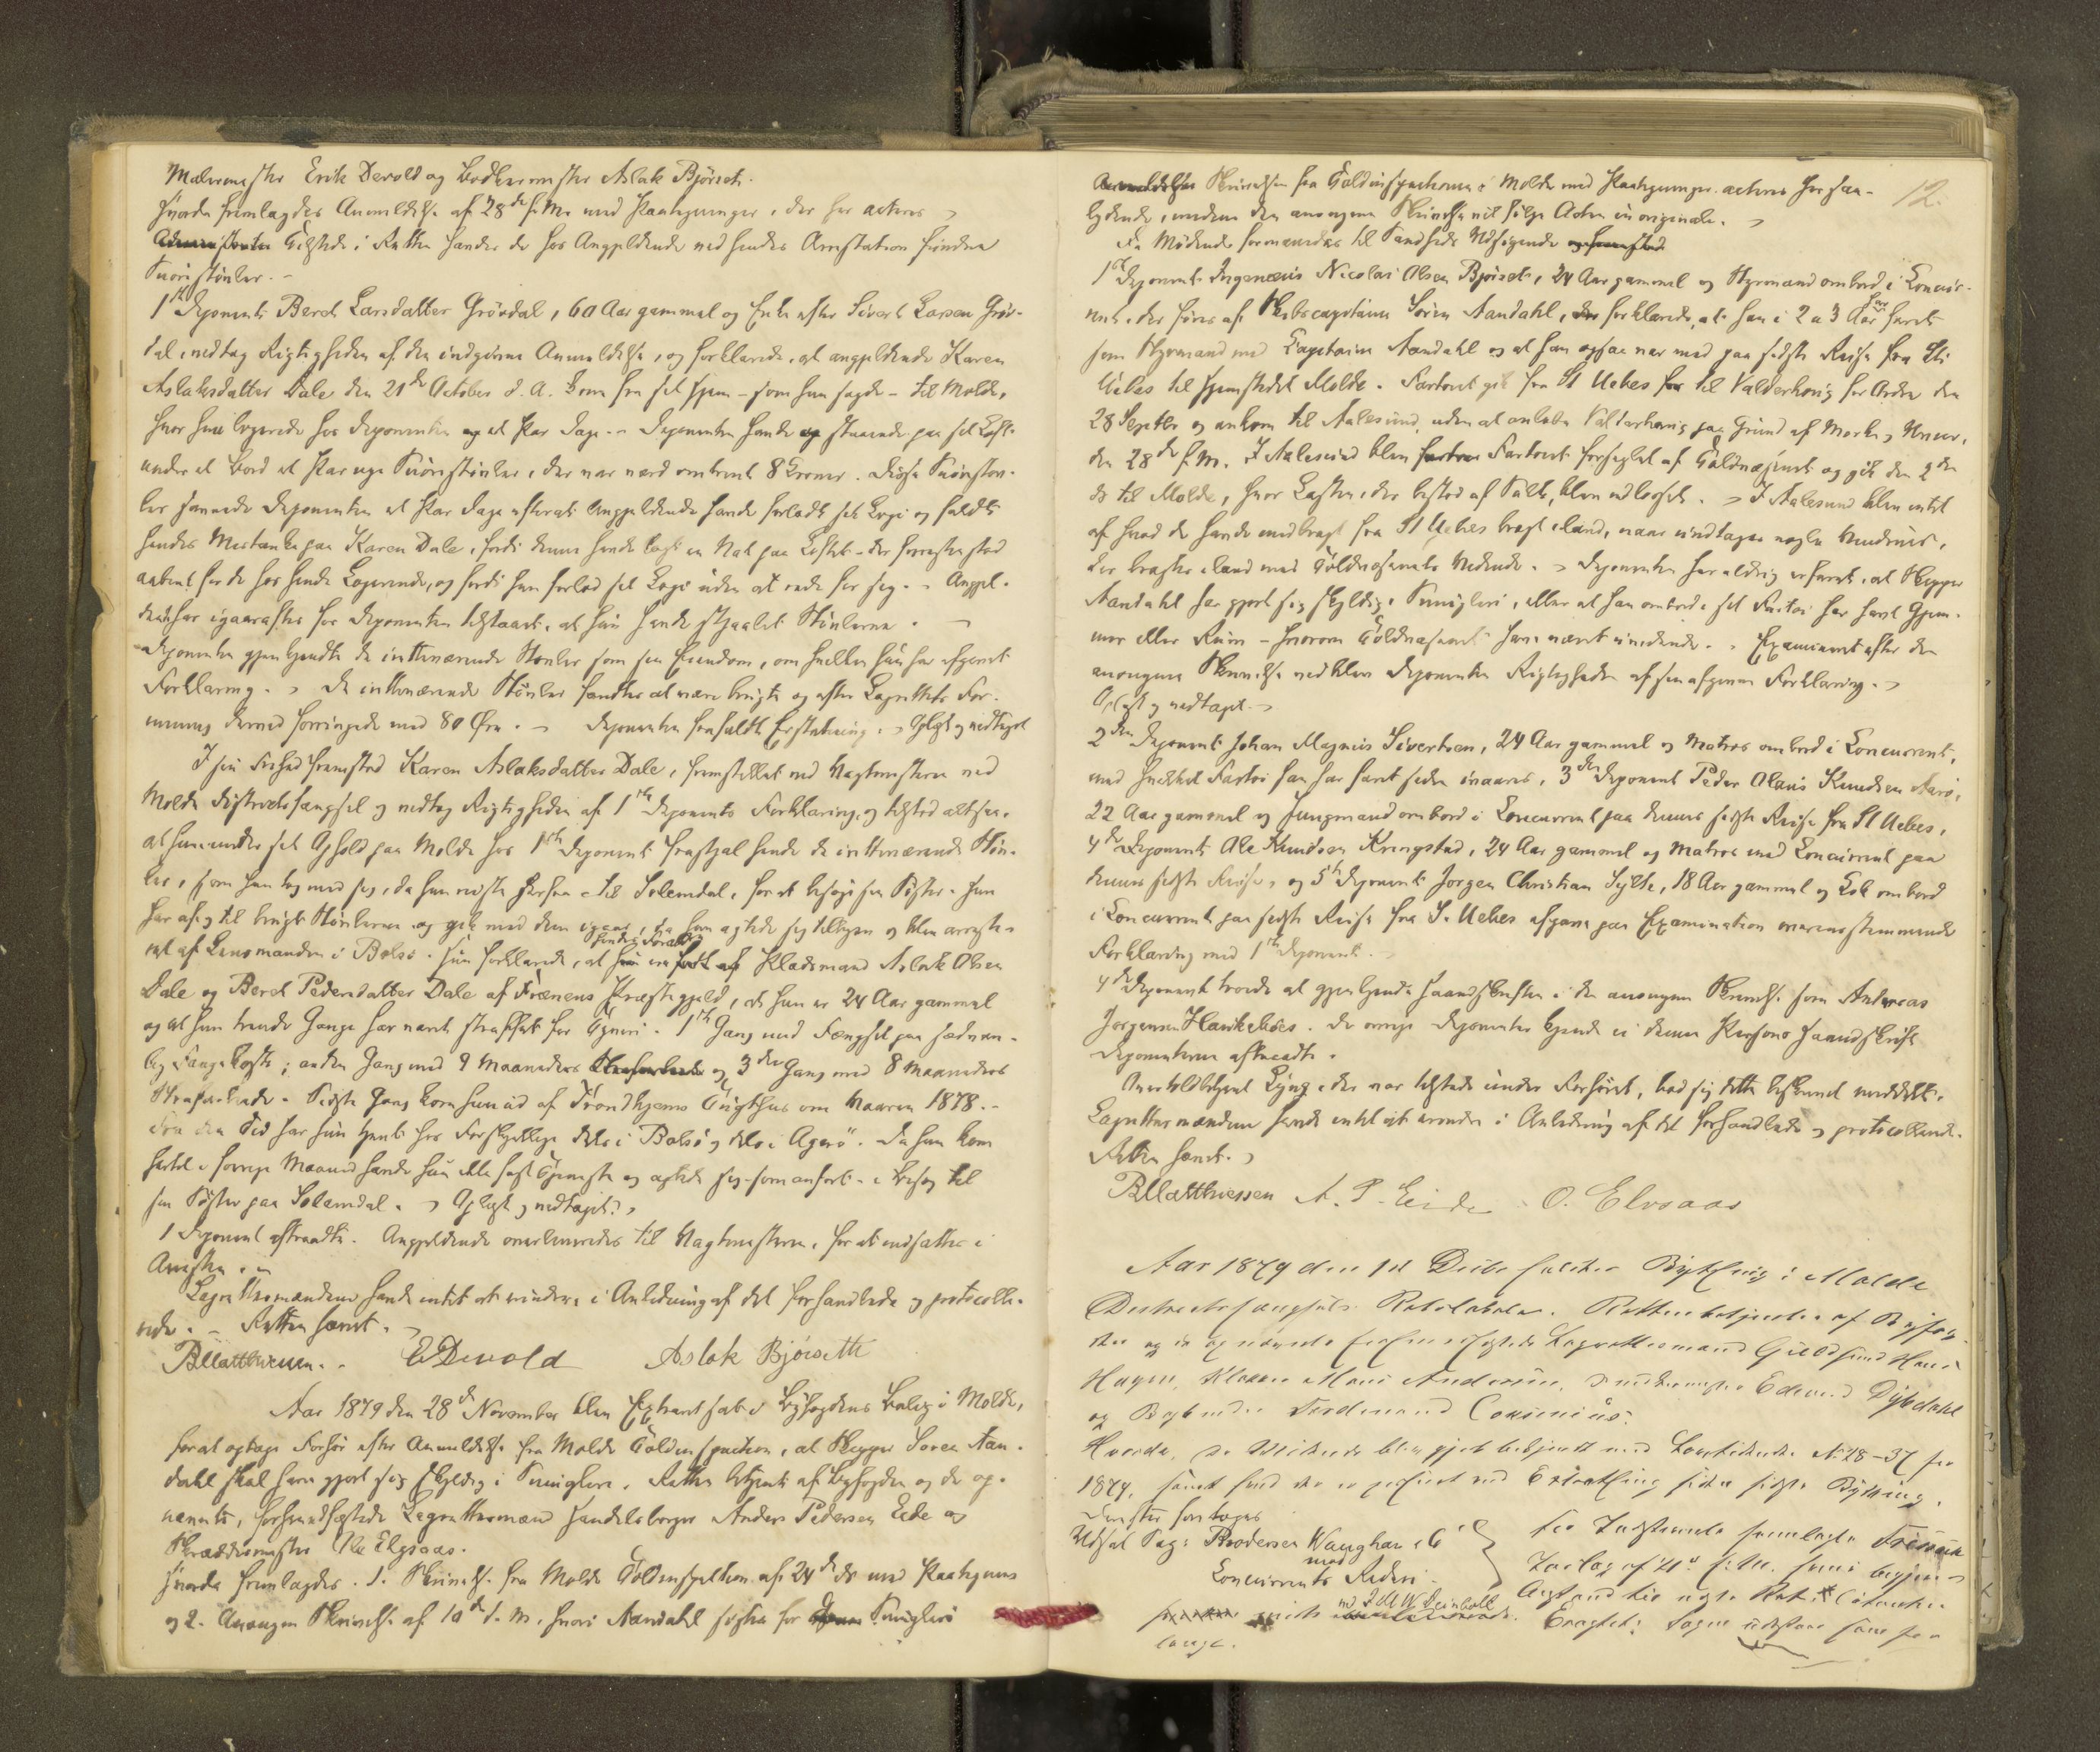 Malermester Erik Devold og Bødkermester Aslak Bjørset.
Hvorda fremlagdes Anmeldelse af 28de f. M. med Paategninger, der her acteres
Tilstede i Retten havdes de hos Angjældende ved hendes Arrestation fundne
Snørestøvler. -
1ste Deponent Beret Larsdatter Grøvdal, 60 Aar gammel og Enke efter Sivert Larsen Grøv-
dal, vedtog Rigtigheden af den indgivne Anmeldelse, og forklarede, at angjældende Karen
Aslaksdatter Dale den 21de October d. A. kom fra sit Hjem - som hun sagde - til Molde,
hvor hun logerede hos Deponenten og et Par Dage. - Deponenten havde staaende paa sit Loft
under et Bord et Par nye Snørestøvler, der var værd omtrent 8 Kroner. Disse Snørestøv-
ler savnede Deponenten et Par Dage efterat Angjældende havde forladt sit Logi og faldt
hendes Mistanke paa Karen Dale, fordi denne havde ligt en Nat paa Loftet - der forresten stod
aabent for de hos hende Logerende, og fordi hun forlod sit Logi uden at gjøre for sig. - Angjæl-
dende har igaaraftes for Deponenten tilstaaet, at hun havde stjaalet Støvlerne. -
Deponenten gjenkjendte de iretteværende Støvler som sin Eiendom, om hvilken hun har afgivet
Forklaring. - De iretteværende Støvler fandtes at være brugte og efter Lagrettets For-
mening derved forringede med 80 Øre. - Deponenten frafaldt Erstatning. - Oplæst og vedtaget
I sin Frihed fremstod Karen Aslaksdatter Dale, fremstillet ved Vagtmesteren ved
Molde Distriktsfængsel og vedtog Rigtigheden af 1ste Deponents Forklaring, og tilstod altsaa,
at hun under sit Ophold paa Molde hos 1ste Deponent frastjal hende de iretteværende Støv-
ler, som hun tog med sig, da hun reiste herfra til Solemdal, for at besøge sin Søster. Hun
har afog til brugt Støvlerne og gik med dem igaar, da hun agtede sig til byen og blev arreste-
ret af Lensmanden i Bolsø. Hun forklarede, at hendes Forældre er Pladsmand Aslak Olsen
Dale og Beret Pedersdatter Dale af Frænens Præstegjæld, at hun er 24 Aar gammel
og at hun trende Gange har været straffet for Tyveri. 1ste Gang med Fængsel paa sædvan-
lig Fangekost; anden Gang med 9 Maaneders og 3die Gang med 8 Maaneders
Strafarbeide. Sidste Gang kom hun ud af Trondhjems Tugthus om Vaaren 1878. -
Fra den Tid har hun tjent hos Forskjellige dels i Bolsø og dels i Agerø. Da hun kom
hertil i forrige Maaned havde hun ikke fast Tjeneste og agtede sig - som anført - i Besøg til
sin Søster paa Solemdal. - Oplæst og vedtaget. -
1 Deponent aftraadte. Angjældende overleveredes til Vagtmesteren, for at indsættes i
Arresten. -
Lagrettesmændene havde intet at erindre i Anledning af det forhandlede og protocolle-
rede. - Retten hævet. -
BMatthiessen. EDevold Aslak Bjørseth
Aar 1879 den 28de November blev Extraret sat i Byfogdens Bolig i Molde,
for at optage Forhør efter Anmeldelse fra Molde Toldinspection, at Skipper Søren Aan-
dahl skal have gjort sig skyldig i Smugleri. Retten betjent af Byfogden og de op-
nævnte, forhenedfæstede Lagrettesmænd Handelsborger Anders Pedersen Eide og
Skræddermester Ole Elvsaas.
Hvorda fremlagdes. 1. Skrivelse fra Molde Toldinspektion af 24de ds med Paategning
og 2. Anonym Skrivelse af 10de d. M. hvori Aandahl sigtes for Smugleri
12.
Skrivelsen fra Toldinspectionen i Molde med Paategninger acteres her saa-
lydende, medens den anonyme Skrivelse vil følge Acten in originale. -
De Mødende formanedes til Sandheds Udsigende
1ste Deponent Ingenæus Nicolai Olsen Bjørset, 24 Aar gammel og Styrmand ombord i Concur-
rent, der føres af Skibscaptain Søren Aandahl, forklarede, at han i 2 a 3 Aar har faret
som Styrmand med Captain Aandahl og at han ogsaa var med paa sidste Reise fra St
Uebes til Hjemstedet Molde. Fartøiet gik fra St Uebes til Valderhoug for Ordre den
28 Septbr og ankom til Aalesund, uden at anløbe Valderhoug paa Grund af Mørke og Uveir,
den 28de f. M. I Aalesund blev Fartøiet forseglet af Toldvæsenet og gik den 2den
ds til Molde, hvor Lasten, der bestod af Salt, blev udlosset. - I Aalesund blev intet
af hvad de havde medbragt fra St Uebes bragt iland, naar undtages nogle Vinduer,
der bragtes iland med Toldvæsenets Vidende. - Deponenten har aldrig erfaret, at Skipper
Aandahl har gjort sig skyldig i Smugleri, eller at han ombord i sit Fartøi har havt Gjem-
mer eller Rum - hvorom Toldvæsenet har været uvidende. - Examineret efter den
anonyme Skrivelse vedblev Deponenten Rigtigheden af sin afgivne Forklaring. -
Oplæst og vedtaget. -
2den Deponent Johan Magnus Sivertsen, 24 Aar gammel og Matros ombord i Concurrent,
med hvilket Fartøi han har faret siden ivaares, 3die Deponent Peder Olaus Knudsen Aarø,
22 Aar gammel og Jungmand ombord i Concurrent paa dennes sidste Reise fra St Uebes,
4de Deponent Ole Knudsen Kringstad, 24 Aar gammel og Matros med Concurrent paa
dennes sidste Reise, og 5te Deponent Jørgen Christian Sylte, 18 Aar gammel og Kok ombord
i Concurrent paa sidste Reise fra St. Uebes afgave paa Examination overensstemmende
Forklaring med 1ste Deponent. -
4de Deponent troede at gjenkjende Haandskriften i den anonyme Skrivelse som Andreas
Jørgensen Haukebøes. De øvrige Deponenter kjende ei denne Persons Haandskrift
Deponenterne aftraadte.
Overtoldbetjent Lyng, der var tilstede under Forhøret, bad sig dette beskrevet meddelt.
Lagrettesmændene havde intet at erindre i Anledning af det forhandlede og protocollerede.
Retten hævet. -
BMatthiessen A. P. Eide O. Elvsaas
Aar 1879 den 1ste Decbr holdtes Bything i Molde
Distriktsfængsels Retslokale. Retten betjentes af Byfog-
den og de opnævnte Lagrettesmænd Guldsmed Hans
Hagen, Klokker Mons Andersen, Edvard Dybdahl
og Ferdinand Consinius.
Hvorda, de Mødende blev gjort bekjendt med Lovtidende No 28-37 for
1879, samt hvad der er udkommet ved siden sidste Bything.
Dernæst foretoges
Udsat Sag: Brodersen Vaughan & Co
mod
Concurrents Rederi
For fremlagde
af f. M.
Eragtet: Sagen udsættes